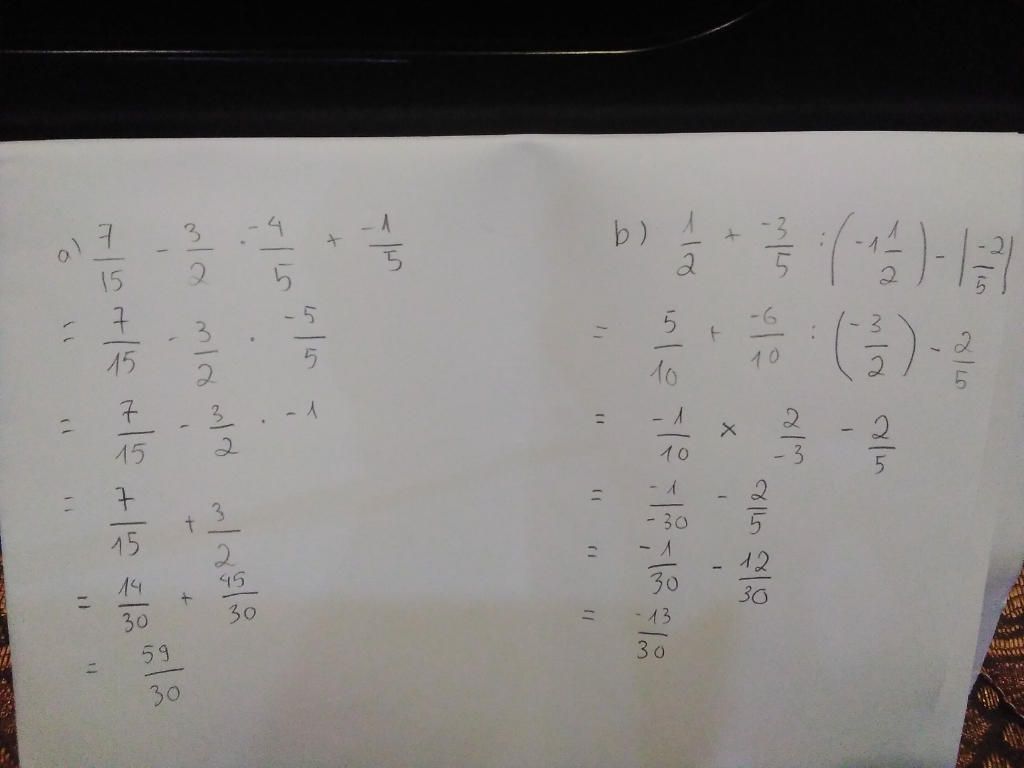 a) 7/15 - 3/2 · -4/5 + -1/5
= 7/15 - 3/2 · -5/5
= 7/15 - 3/2 · -1
= 7/15 + 3/2
= 14/30 + 45/30
= 59/30
b) 1/2 + -3/5 : (-1 1/2) - |-2/5|
= 5/10 + -6/10 : (-3/2) - 2/5
= -1/10 × 2/-3 - 2/5
= -1/-30 - 2/5
= -1/30 - 12/30
= -13/30